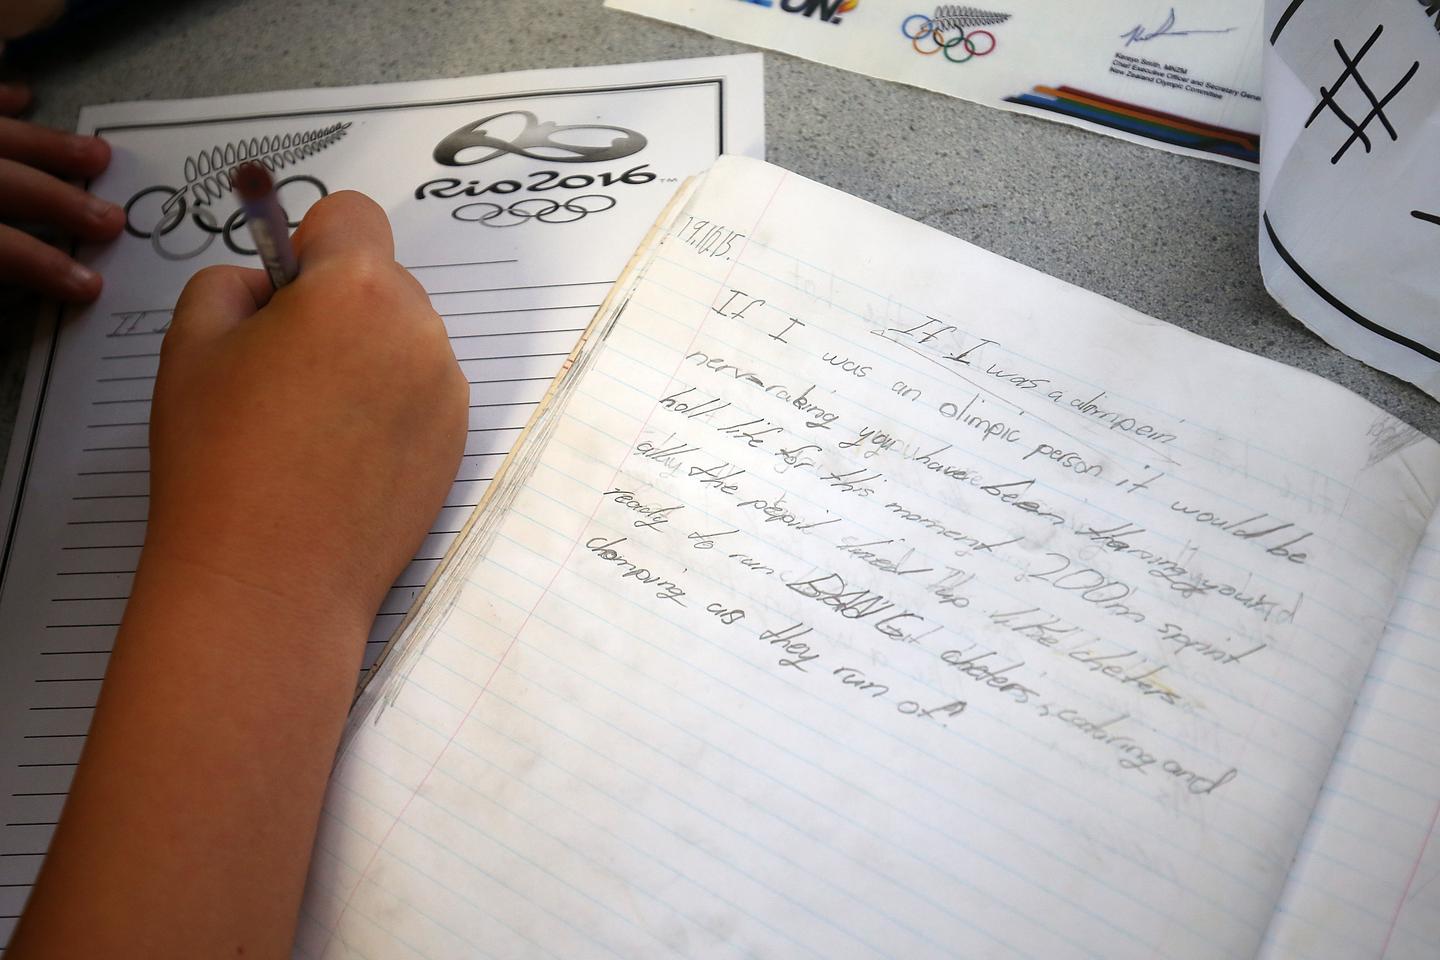 ON!
Kereyn Smith, MNZM
Chief Executive Officer and Secretary General
New Zealand Olympic Committee
#
Rio2016™
If I
19.10.15.
If I was a dompein
If I was an olimpic person it would be
nerveraking you have been
holl life for this moment 200m sprint
ally the pepil lined Up. like cheters
ready to run BANG cheters, and
chomping as they run of.